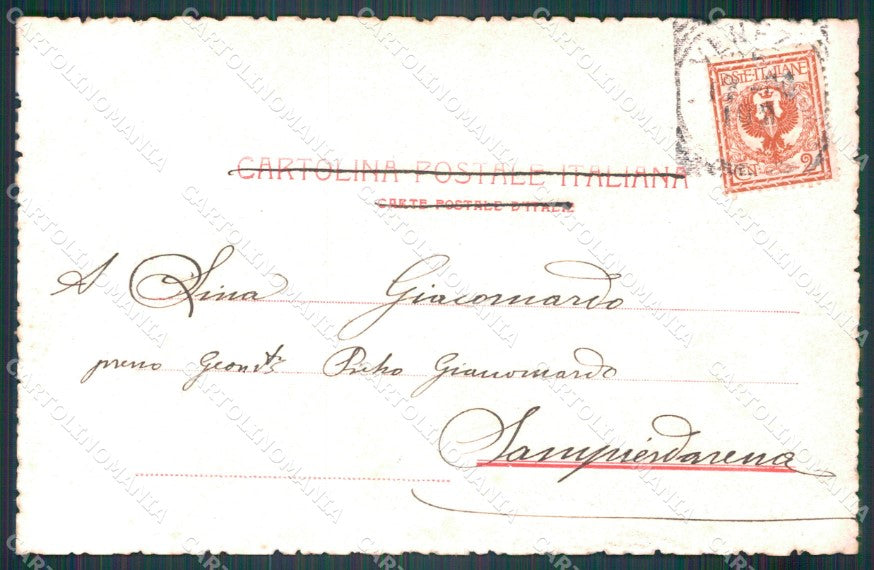 VENEZ
POSTE·ITALIANE
CEN. 2
CARTOLINA POSTALE ITALIANA
CARTE POSTALE D'ITALIE
A Lina Giacomardo
presso Geom. Giacomardo
Sampierdarena
CARTOLINOMANIA